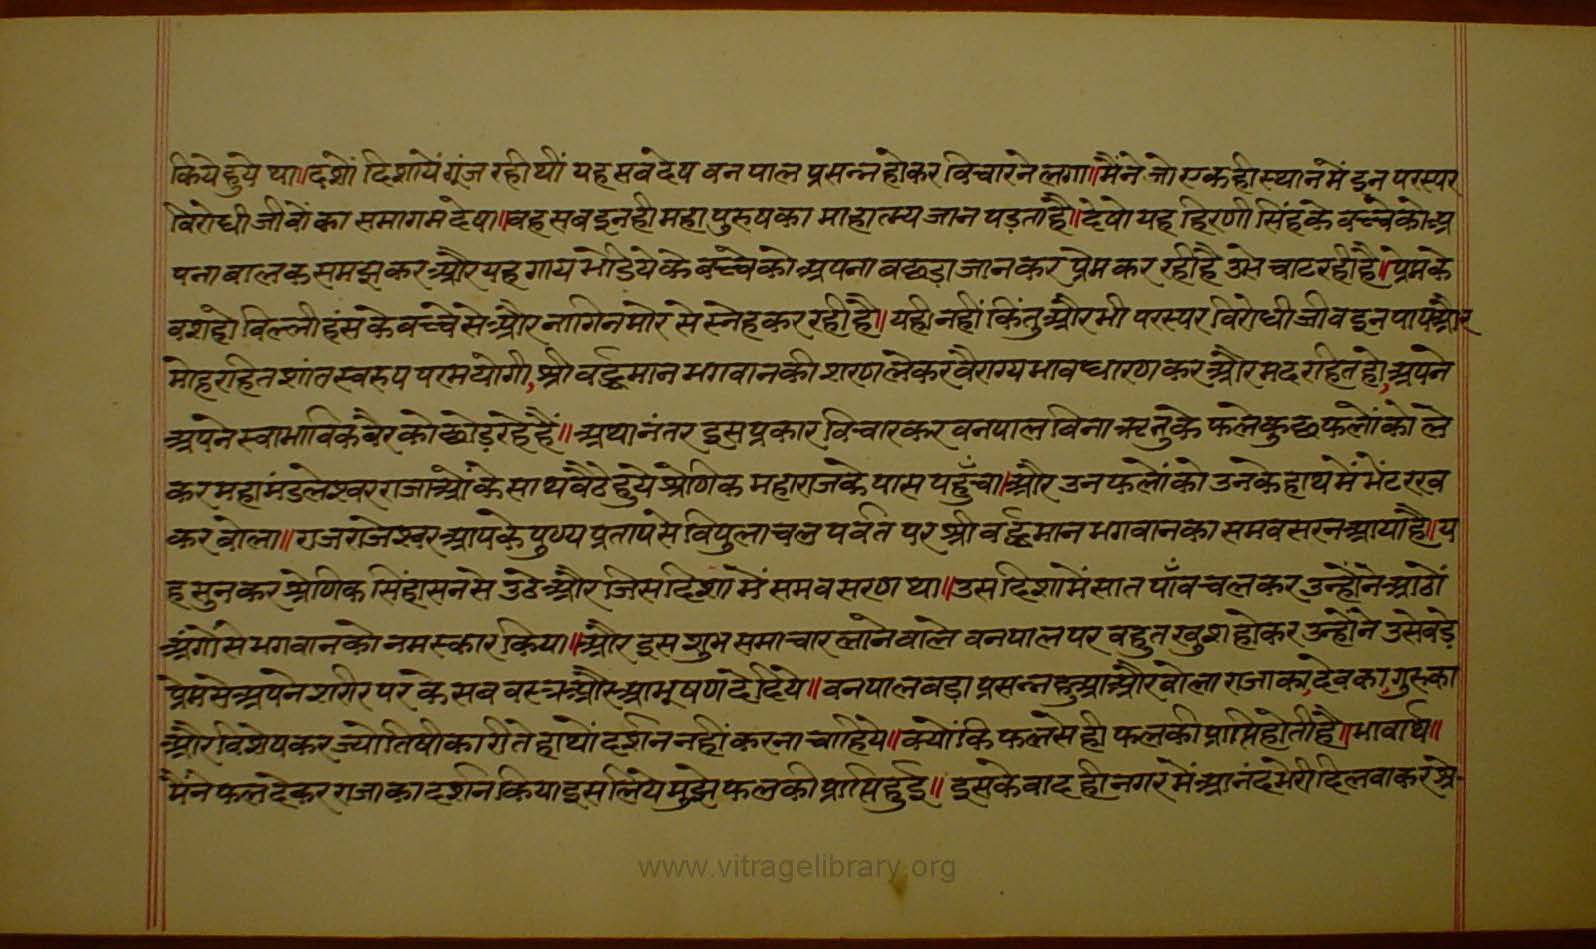 किये हुये था॥दशों दिशायें गूंज रही थीं यह सव देष वन पाल प्रसन्न होकर विचारने लगा॥मैंने जो एक ही स्थान में इन परस्पर
विरोधी जीवों का समागम देषा॥वह सव इनही महा पुरुषका माहात्म्य जान पड़ता है॥देषो यह हिरणी सिंह के वच्चे को अ
पना वालक समझ कर और यह गाय भेडिये के वच्चे को अपना वछड़ा जान कर प्रेम कर रही है उसे चाट रही है॥प्रेम के
वश हो विल्ली हंस के वच्चे से और नागिन मोर से स्नेह कर रही है॥यही नहीं किंतु और भी परस्पर विरोधी जीव इन पाप और
मोह रहित शांत स्वरुप परम योगी, श्री वर्द्धमान भगवान की शरण लेकर वैराग्य भाव धारण कर और मद रहित हो, अपने
अपने स्वाभाविक वैर को छोड़ रहे हैं॥ अथानंतर इस प्रकार विचार कर वनपाल विना ऋतु के फले कुछ फलों को ले
कर महामंडलेश्वर राजाओं के साथ वैठे हुये श्रेणिक महाराज के पास पहुँचा॥और उन फलों को उनके हाथ में भेंट रख
कर वोला॥ राजराजेश्वर आपके पुण्य प्रताप से विपुलाचल पर्वत पर श्री वर्द्धमान भगवान का समवसरन आया है॥य
ह सुन कर श्रेणिक सिंहासन से उठे और जिस दिशा में समवसरण था॥उस दिशा में सात पाँव चल कर उन्होंने आठों
अंगों से भगवान को नमस्कार किया॥और इस शुभ समाचार लाने वाले वनपाल पर वहुत खुश होकर उन्होंने उसे वड़े
प्रेम से अपने शरीर पर के सव वस्त्र और आभूषण दे दिये॥ वनपाल वड़ा प्रसन्न हुआ और वोला राजा का, देव का, गुरु का
और विशेष कर ज्योतिषी का रीते हाथों दर्शन नहीं करना चाहिये॥क्यों कि फल से ही फल की प्राप्ति होती है॥भावार्थ॥
मैंने फल देकर राजा का दर्शन किया इस लिये मुझे फल की प्राप्ति हुई॥ इसके वाद ही नगर में आनंद भेरी दिलवा कर श्रे-
www.vitragelibrary.org